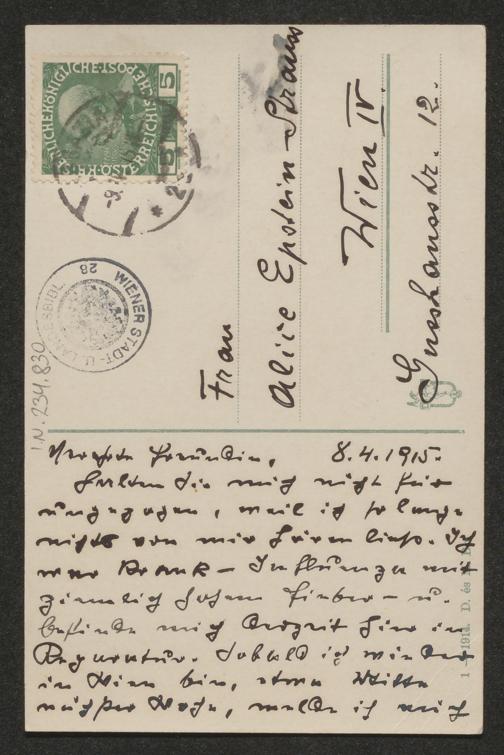 5
5
WIENER STADT-U. LANDESBIBL.
28
I.N. 234.830
Frau
Alice Epstein-Strauss
Wien IV.
Gusshausstr. 12.
Verehrte Freundin, 8.4.1915.
Halten Sie mich nicht für
ungezogen, weil ich so lange
nichts von mir hören liess. Ich
war krank – Influenza mit
ziemlich hohem Fieber – u.
befinde mich derzeit hier in
Reparatur. Sobald ich wieder
in Wien bin, etwa Mitte
nächster Woche, melde ich mich